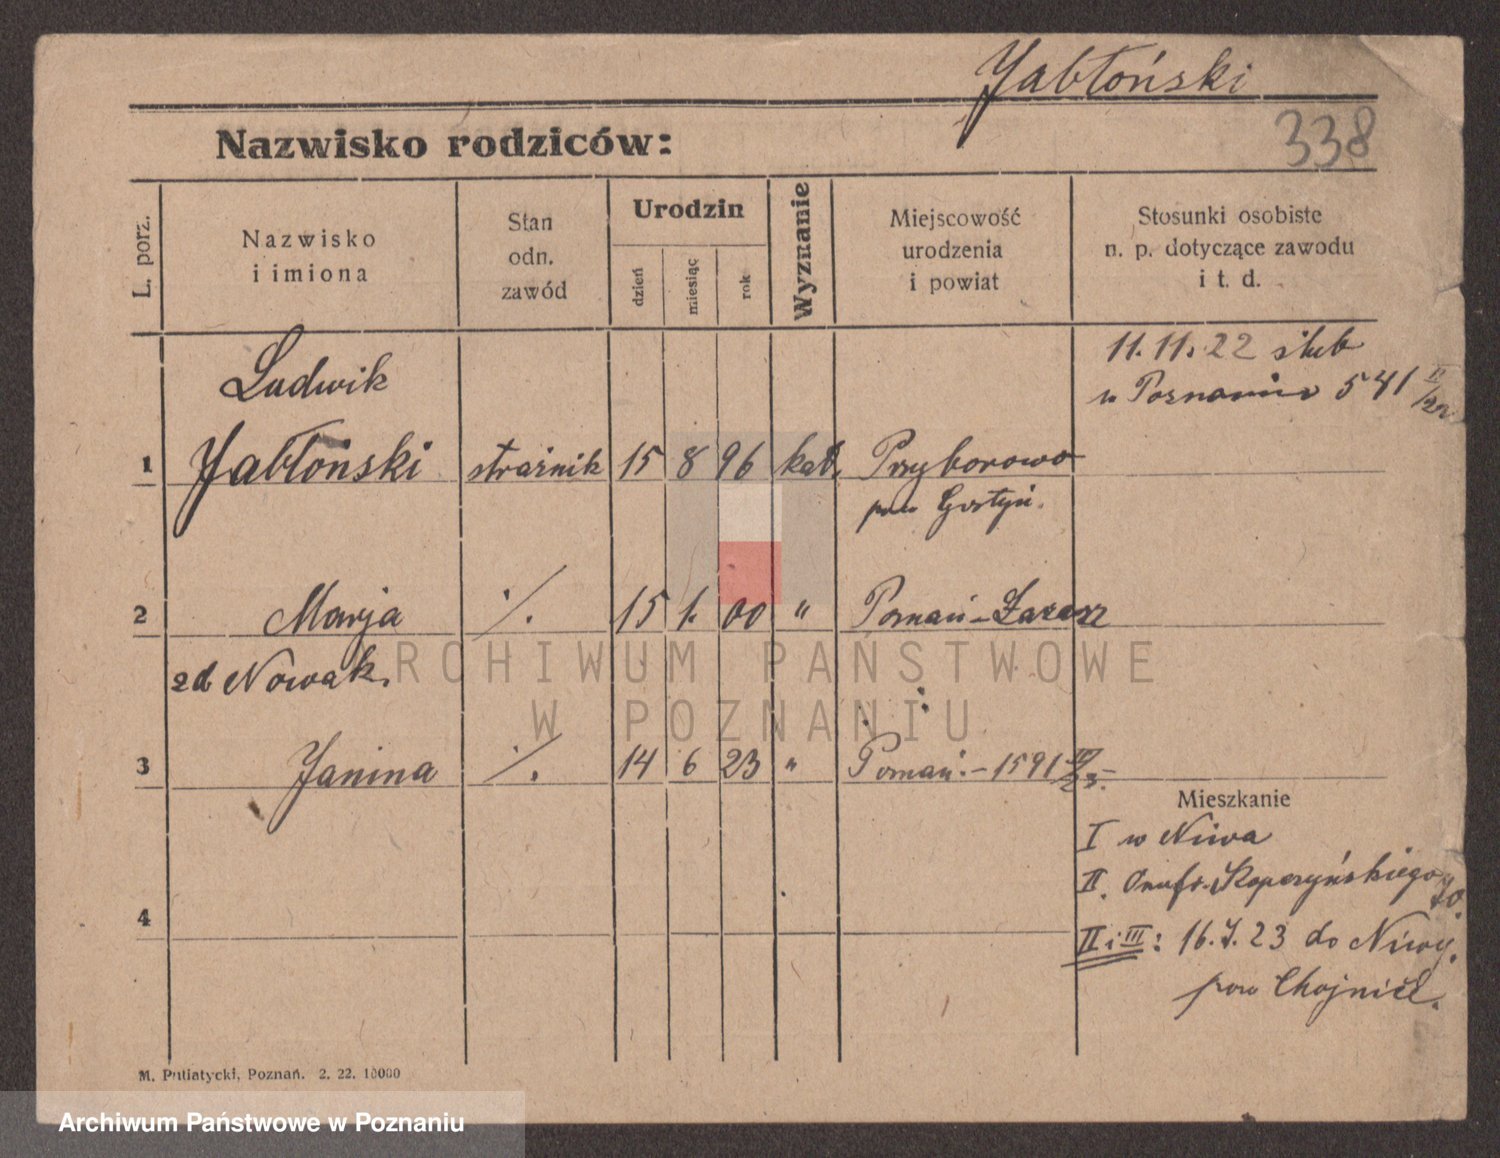 Jabłoński
338
Nazwisko rodziców:
L. porz.
Nazwisko
i imiona
Stan
odn.
zawód
Urodzin
dzień
miesiąc
rok
Wyznanie
Miejscowość
urodzenia
i powiat
Stosunki osobiste
n. p. dotyczące zawodu
i t. d.
11. 11. 22 ślub
w Poznaniu 541 II/22
1 Ludwik
Jabłoński strażnik 15 8 96 kat. Przyborowo
pow Gostyń.
2 Marja ./. 15 1. 00 " Poznań-Łazarz
zd Nowak.
3 Janina ./. 14 6 23 " Poznań.- 1591
Mieszkanie
I w Niwa
II. Onufr. Kopczyńskiego
II i III: 16. 7. 23 do Niwy.
pow Chojnice.
4
M. Putiatycki, Poznań. 2. 22. 10000
ARCHIWUM PAŃSTWOWE
W POZNANIU
Archiwum Państwowe w Poznaniu